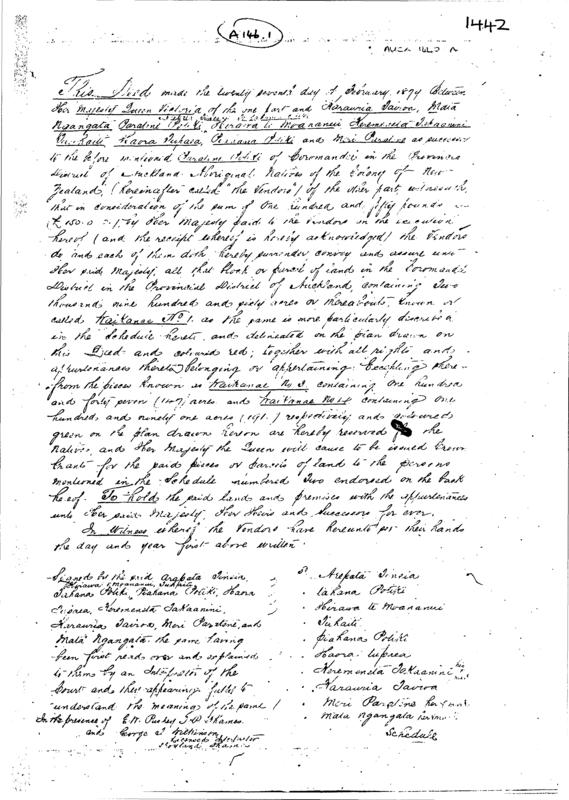 A 146.1
1442
This Deed made the twenty seventh day of February 1874 Between
Her Majesty Queen Victoria of the one part and Karauria Tairoa, Mata
Ngangata, Paratene Potiki, Hirawa te Moananui Keremeneta Takaanini
Tukaiti Haora Potiki and Meri Paratene as successor
to the before mentioned Paratene Potiki of Coromandel in the Provincial
District of Auckland Aboriginal Natives of the Colony of New
Zealand, (hereinafter called "the Vendors") of the other part witnesseth,
that in consideration of the sum of One hundred and fifty pounds
(£150.0.) by Her Majesty paid to the Vendors on the execution
hereof (and the receipt whereof is hereby acknowledged) the Vendors
do and each of them doth hereby surrender convey and assure unto
Her said Majesty, all that block or parcel of land in the Coromandel
District in the Provincial District of Auckland, containing Two
thousand nine hundred and sixty acres or thereabouts, known or
called Waikanae No 1. as the same is more particularly described
in the Schedule hereto, and delineated on the plan drawn on
this Deed and coloured red; together with all rights and
appurtenances thereto belonging or appertaining Excepting there-
from the pieces known as Waikanae No 3. containing One hundred
and forty seven (147) acres and Waikanae No 4 containing one
hundred and ninety one acres (191.) respectively and coloured
green on the plan drawn hereon are hereby reserved for the
Natives, and Her Majesty the Queen will cause to be issued Crown
Grants for the said pieces or parcels of land to the persons
mentioned in the Schedule numbered Two endorsed on the back
hereof. To hold the said land and premises with the appurtenances
unto Her said Majesty, Her Heirs and Successors for ever.
In Witness whereof the Vendors have hereunto set their hands
the day and year first above written.
Signed by the said Arepata Tincia
Hirawa te Moananui, Tukaiti
Tahana Potiki, Piahana Potiki, Haora
Keremeneta Takaanini,
Karauria Tairoa, Meri Paratene, and
Mata Ngangata the same having
been first read over and explained
to them by an Interpreter of the
Court and they appearing fully to
understand the meaning of the same
In the presence of E.W. Puckey J.P. Thames.
and George T Wilkinson
Licensed Interpreter
Arepata Tincia
Tahana Potiki
Hirawa te Moananui
Tukaiti
Piahana Potiki
Haora
Keremeneta Takaanini
Karauria Tairoa
Meri Paratene her mark
Mata Ngangata her mark
Schedule